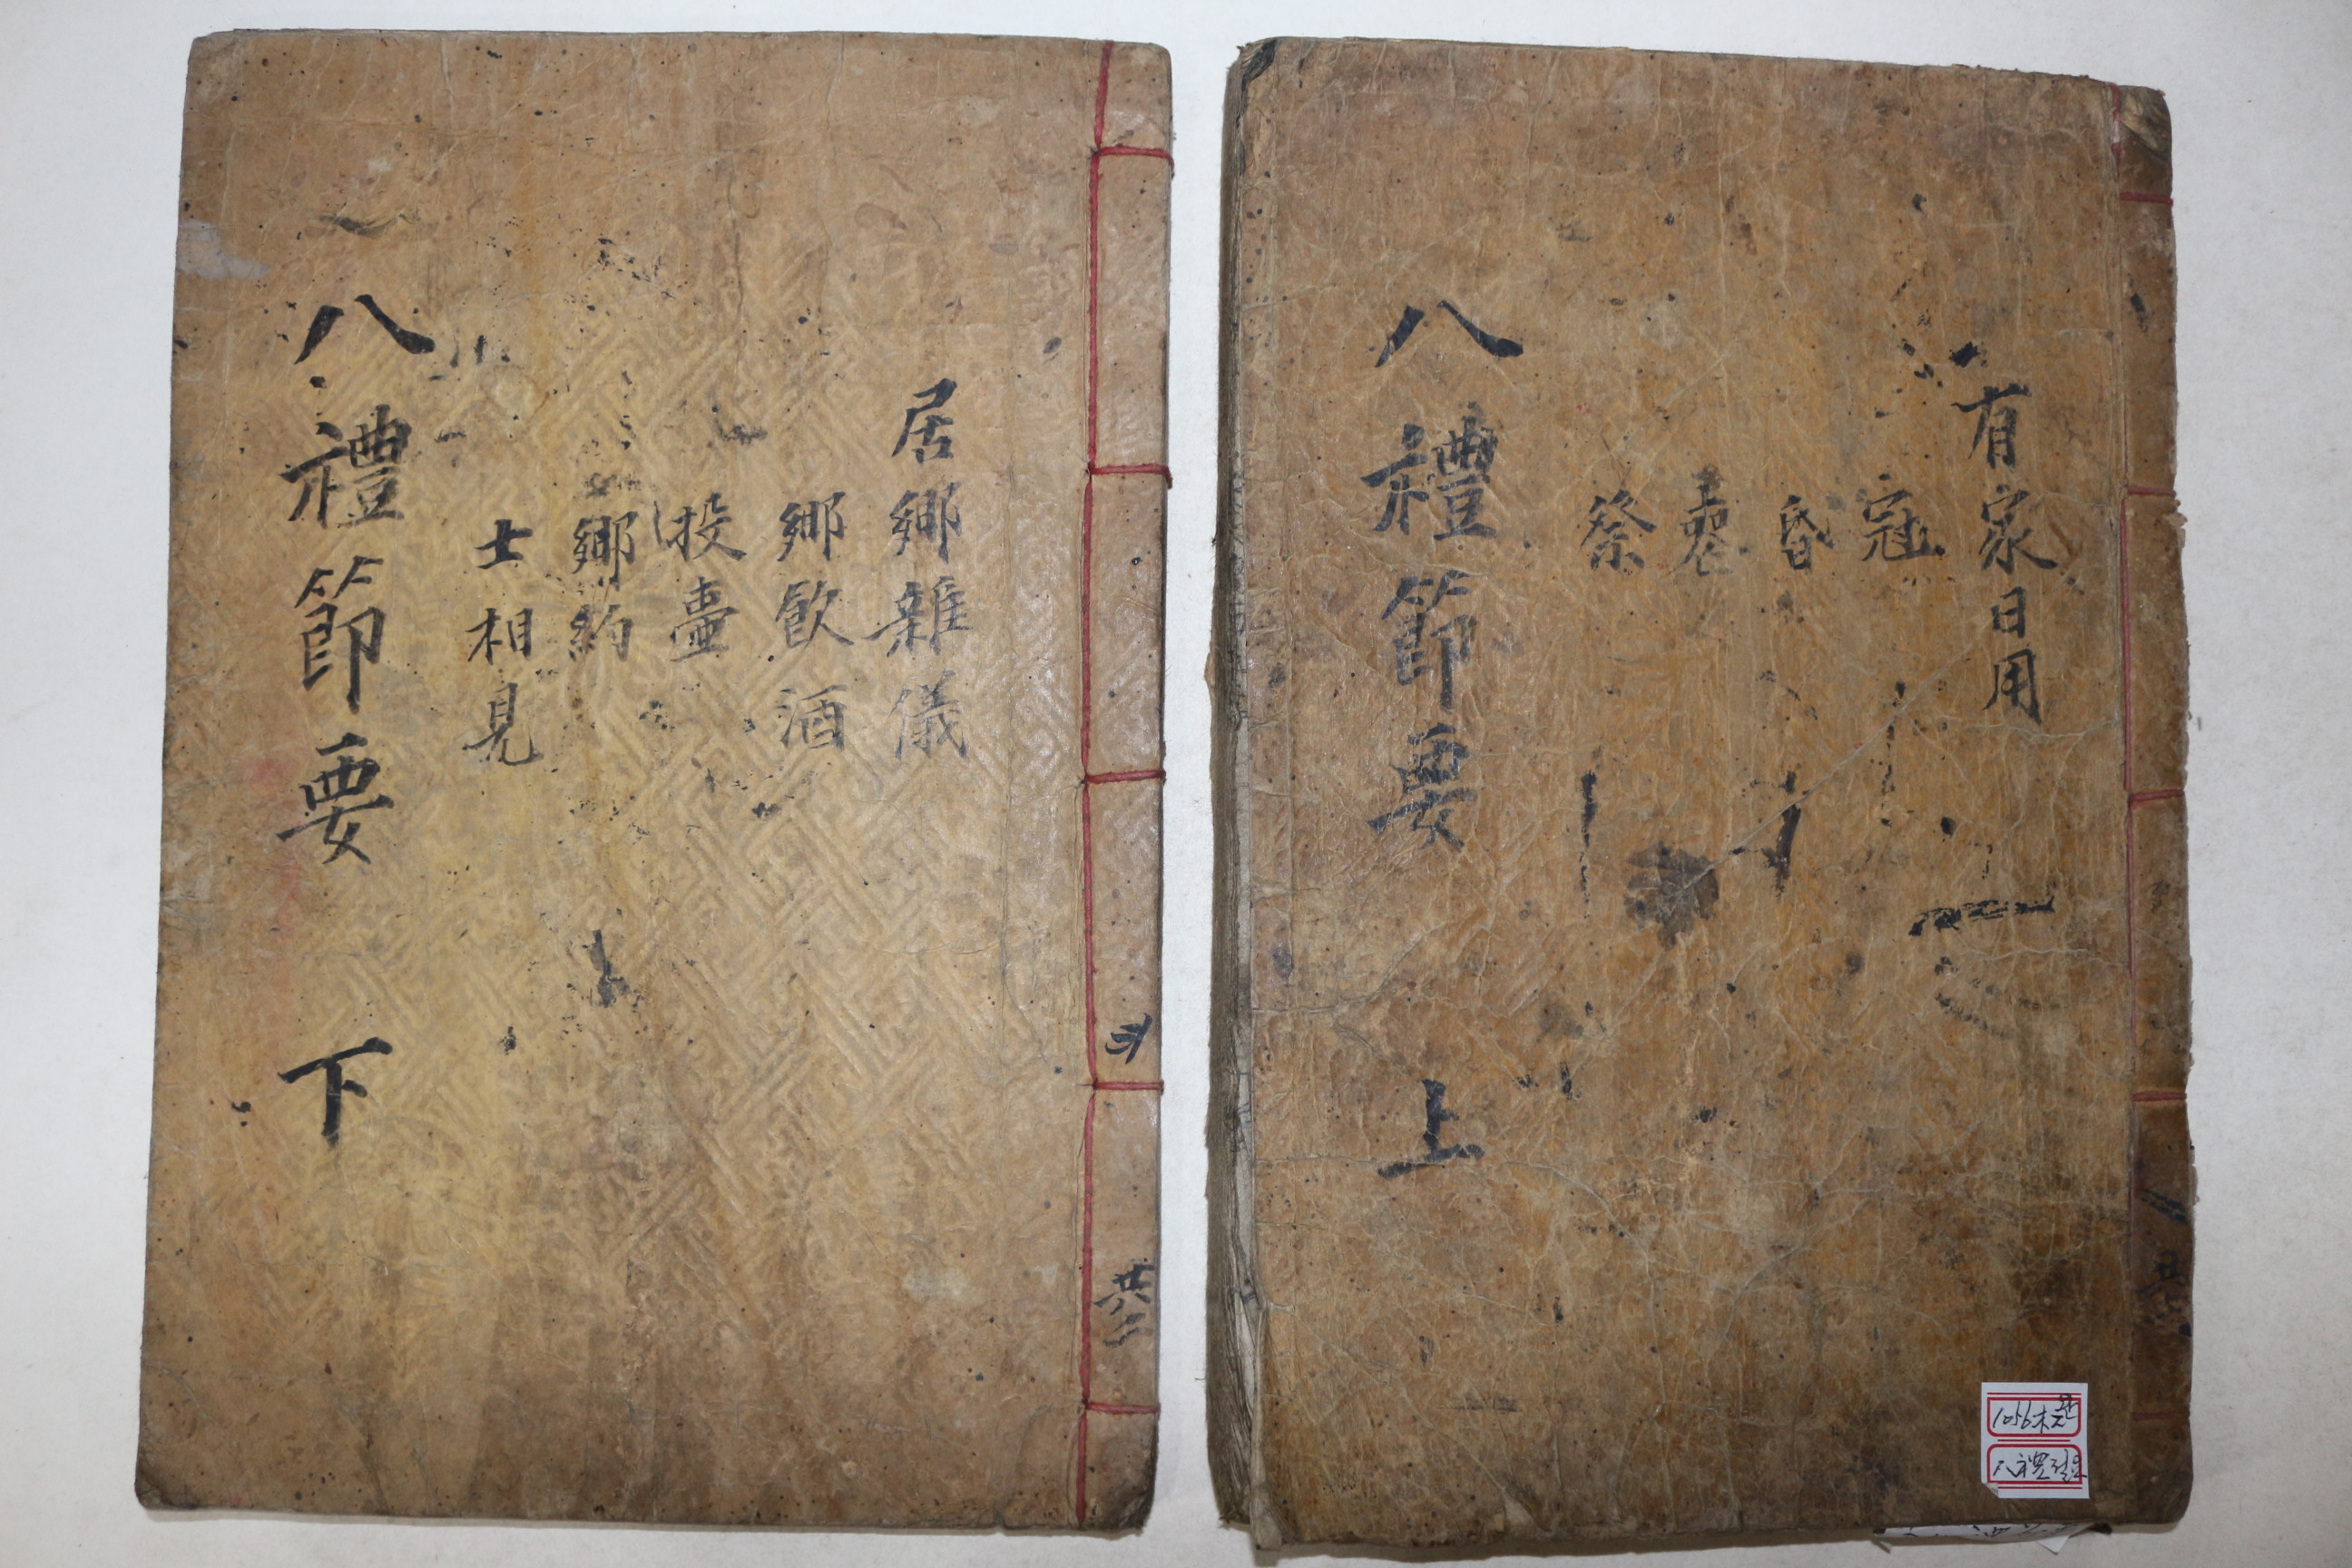 有家日用
冠
昏
喪
祭
八禮節要 上
八禮節要
居鄉雜儀
鄉飮酒
投壺
鄉約
士相見
八禮節要 下
共二